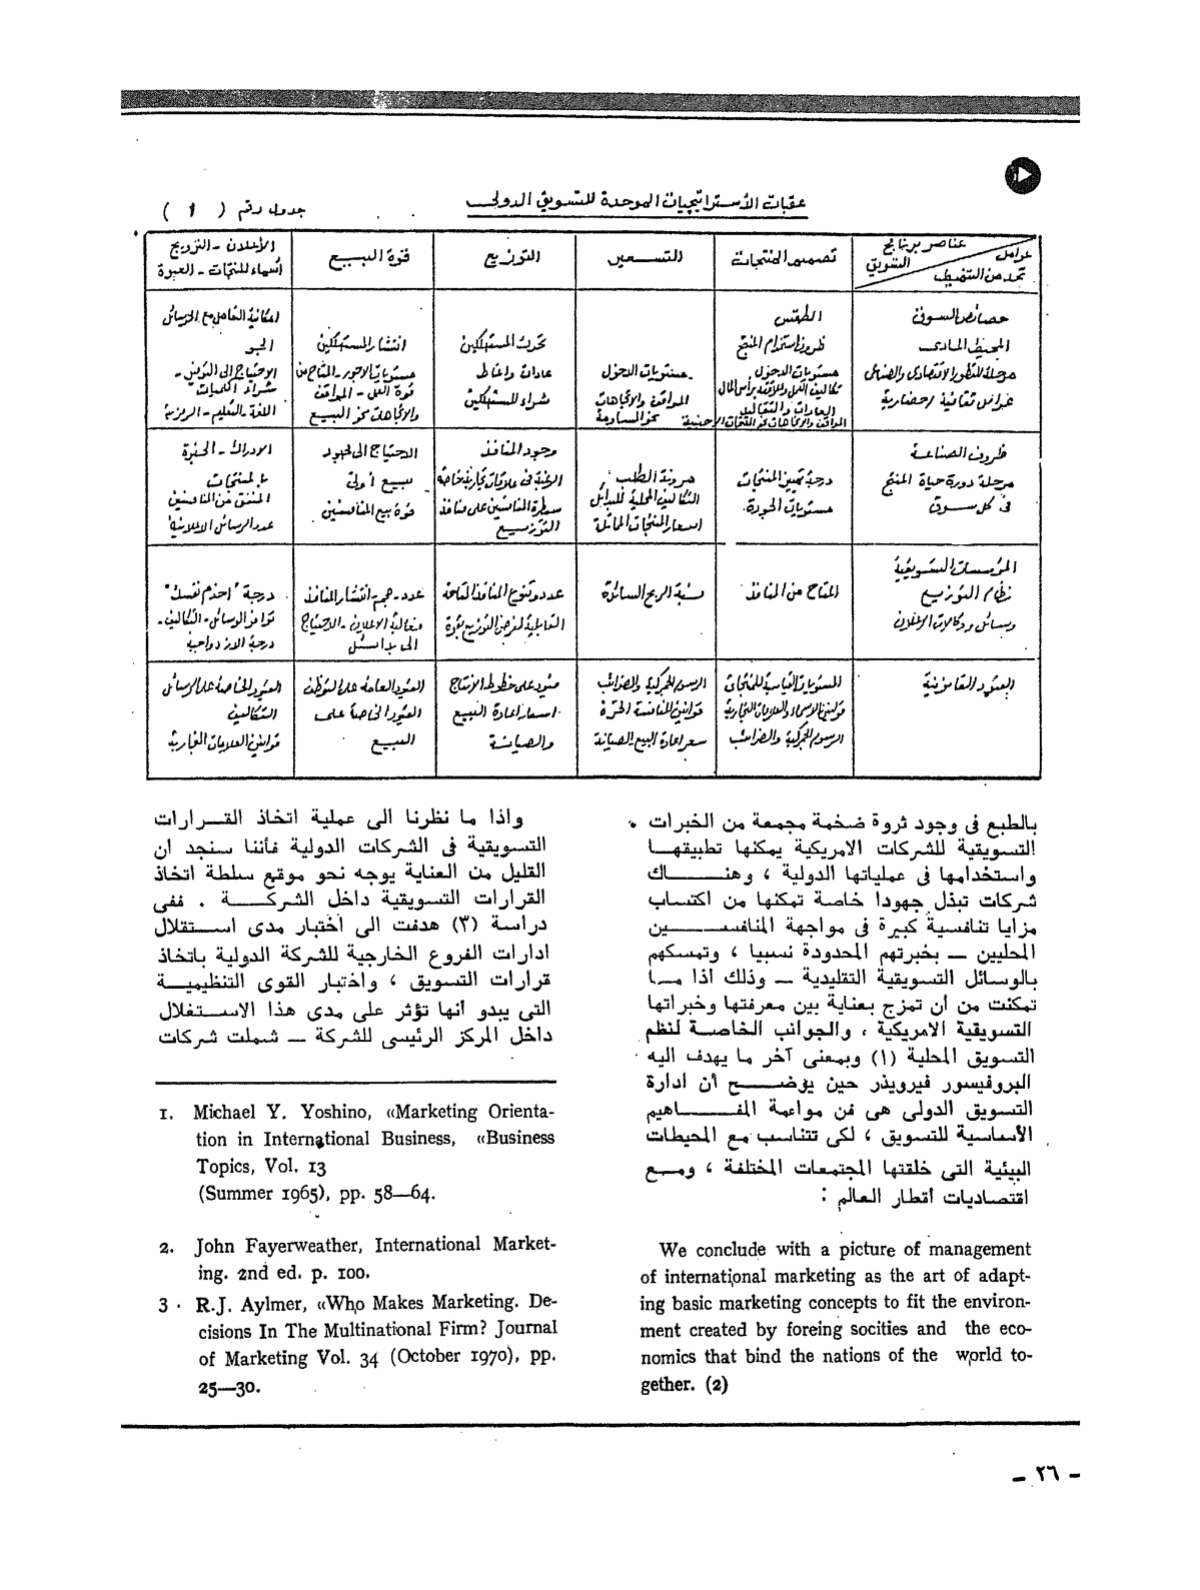 عقبات الأستراتيجيات الموحدة للتسويق الدولى
جدول رقم ( 1 )
عناصر برنامج التسويق
عوامل تحد من التنميط
تصميم المنتجات
التسعير
التوزيع
قوة البيع
الأعلان - الترويج
أسماء المنتجات - العبوة
خصائص السوق
المحيط المادى
مرحلة التطور الاقتصادى والصناعى
الطقس
ظروف استخدام المنتج
مستويات الدخول
مستويات الدخول
المواقف والاتجاهات
نحو المساومة
تحرك المستهلكين
عادات وأنماط
شراء المستهلكين
انتشار المستهلكين
والاتجاهات نحو البيع
الجو
اللغة - التعليم - الرمزية
ظروف الصناعة
مرحلة دورة حياة المنتج
فى كل سوق
درجة تميز المنتجات
مستويات الجودة
مرونة الطلب
التكاليف المحلية للبدائل
اسعار المنتجات المماثلة
وجود المنافذ
سيطرة المنافسين على منافذ
التوزيع
الاحتياج الى جهود
بيع أولى
قوة بيع المنافسين
الادراك - الخبرة
بالمنتجات
المنفق من المنافسين
المؤسسات التسويقية
نظام التوزيع
وسائل ووكالات الإعلان
المتاح من المنافذ
نسبة الربح السائدة
عدد وتنوع المنافذ المتاحة
عدد - حجم - انتشار المنافذ
درجة "اخدم نفسك"
توافر الوسائل - التكاليف -
درجة الازدواجية
القيود القانونية
الرسوم الجمركية والضرائب
الرسوم الجمركية والضرائب
قوانين المنافسة الحرة
قيود على خطوط الإنتاج
اسعار اعادة البيع
والصيانة
القيود العامة على التوظف
القيود الخاصة على
البيع
القيود الخاصة على الرسائل
التكاليف
قوانين العلامات التجارية
بالطبع فى وجود ثروة ضخمة مجمعة من الخبرات
التسويقية للشركات الامريكية يمكنها تطبيقهــا
واستخدامها فى عملياتها الدولية ، وهنــــــاك
شركات تبذل جهودا خاصة تمكنها من اكتساب
مزايا تنافسية كبيرة فى مواجهة المنافســــــين
المحليين ــ بخبرتهم المحدودة نسبيا ، وتمسكهم
بالوسائل التسويقية التقليدية ــ وذلك اذا مــا
تمكنت من أن تمزج بعناية بين معرفتها وخبراتها
التسويقية الامريكية ، والجوانب الخاصــة لنظم
التسويق المحلية (١) وبمعنى آخر ما يهدف اليه
البروفيسور فيرويذر حين يوضـــــح أن ادارة
التسويق الدولى هى فن مواءمة المفـــــاهيم
الأساسية للتسويق ، لكى تتناسب مع المحيطات
البيئية التى خلقتها المجتمعات المختلفة ، ومــع
اقتصاديات أقطار العالم :
We conclude with a picture of management
of international marketing as the art of adapt-
ing basic marketing concepts to fit the environ-
ment created by foreing socities and the eco-
nomics that bind the nations of the world to-
gether. (2)
واذا ما نظرنا الى عملية اتخاذ القــرارات
التسويقية فى الشركات الدولية فأننا سنجد ان
القليل من العناية يوجه نحو موقع سلطة اتخاذ
القرارات التسويقية داخل الشركــــة . ففى
دراسة (٣) هدفت الى أختبار مدى اســـتقلال
ادارات الفروع الخارجية للشركة الدولية باتخاذ
قرارات التسويق ، واختبار القوى التنظيميــة
التى يبدو أنها تؤثر على مدى هذا الاســتغلال
داخل المركز الرئيسى للشركة ــ شملت شركات
1. Michael Y. Yoshino, «Marketing Orienta-
tion in International Business, «Business
Topics, Vol. 13
(Summer 1965), pp. 58—64.
2. John Fayerweather, International Market-
ing. 2nd ed. p. 100.
3 · R.J. Aylmer, «Who Makes Marketing. De-
cisions In The Multinational Firm? Journal
of Marketing Vol. 34 (October 1970), pp.
25—30.
– ٢٦ –